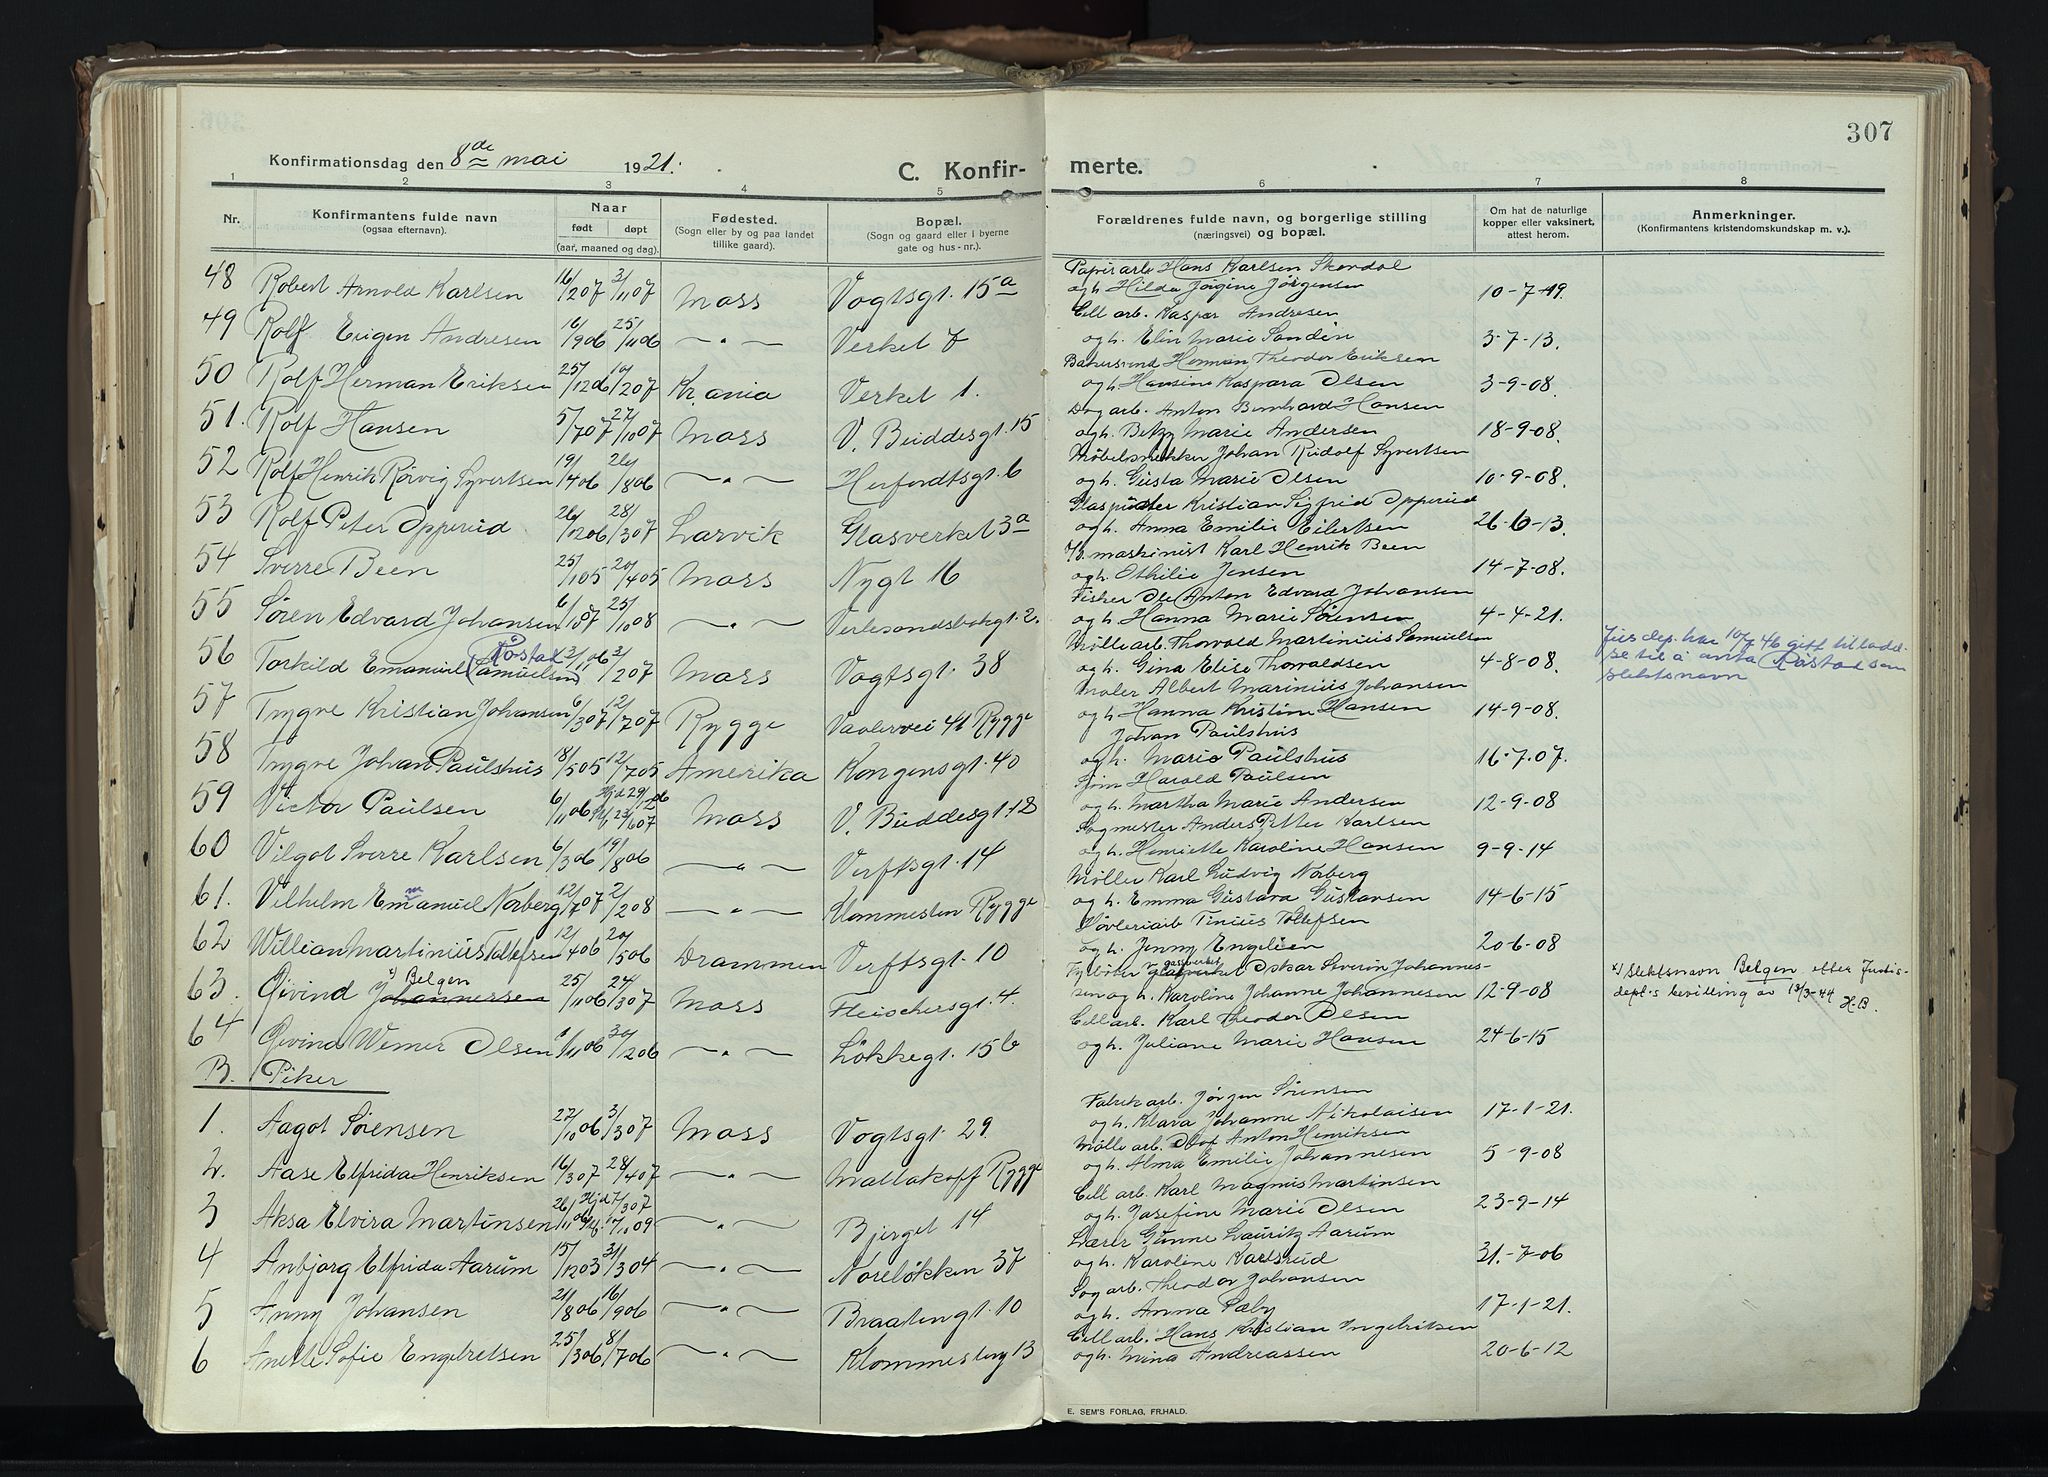 307
Konfirmationsdag den 8de mai 1921.
C. Konfir-
merte.
1 2 3 4 5 6 7 8
Nr.
Konfirmantens fulde navn
(ogsaa efternavn).
Naar
født døpt
(aar, maaned og dag).
Fødested.
(Sogn eller by og paa landet
tillike gaard).
Bopæl.
(Sogn og gaard eller i byerne
gate og hus-nr.).
Forældrenes fulde navn, og borgerlige stilling
(næringsvei) og bopæl.
Om hat de naturlige
kopper eller vaksinert,
attest herom.
Anmerkninger.
(Konfirmantens kristendomskundskap m. v.).
Papirarb. Hans Karlsen Skendal
48 Robert Arnold Karlsen 16/2 07 3/11 07 Moss Vogtsgt. 15a og h. Hilda Jørgine Jørgensen 10-7-19.
Cell arb. Kaspar Andresen
49 Rolf Eugen Andresen 16/9 06 25/11 06 — " — Verket 7 og h. Elin Marie Sandén 3-7-13.
Bakersvend Herman Theodor Eriksen
50 Rolf Herman Eriksen 25/12 06 10/2 07 Kr.ania Verket 1. og h. Hansine Kaspara Olsen 3-9-08.
Dagarb. Anton Bernhard Hansen
51. Rolf Hansen 5/7 07 27/10 07 Moss V. Buddesgt. 15 og h. Betzy Marie Andersen 18-9-08.
Møbelsnekker Johan Rudolf Syvertsen
52 Rolf Henrik Rørvig Syvertsen 19/4 06 26/8 06 — " — Herfordtsgt. 6 og h. Gusta Marie Olsen 10-9-08.
Glaspuster Kristian Sigfrid Opperud
53 Rolf Peter Opperud 26/12 06 28/3 07 Larvik Glasverket 3a og h. Anna Emilie Eilertsen 26-6-13.
maskinist Karl Henrik Been
54 Sverre Been 25/1 05 20/4 05 Moss Nygt 16 og h. Othilie Jensen 14-7-08.
Fisker Ole Anton Edvard Johansen
55 Søren Edvard Johansen 6/1 07 25/10 08 — " — Verlesandsbakgt. 2. og h. Hanna Marie Sørensen 4-4-21.
Mølle arb. Thorvald Martinius Samuelsen
56 Torkild Emanuel (Samuelsen) Råstad 3/11 06 3/2 07 Moss Vogtsgt. 38 og h. Gina Elise Thorvaldsen 4-8-08.
Jus. dep. har 10/7 46 gitt tillatel-
se til å anta Råstad som
slektsnavn
Maler Albert Marinius Johansen
57 Trygve Kristian Johansen 6/3 07 12/7 07 Rygge Vaalervei 41 Rygge og h. Hanna Kristine Hansen 14-9-08.
Johan Paulshus
58 Trygve Johan Paulshus 18/5 05 12/7 05 Amerika Kongensgt. 40 og h. Marie Paulshus 16-7-07.
Sjøm Harald Paulsen
59 Victor Paulsen 6/11 06 Hjd 29/12 06 23/6 07 Moss V. Buddesgt. 12 og h. Martha Marie Andersen 12-9-08
Sagmester Anders Petter Karlsen
60 Vilgot Sverre Karlsen 6/3 06 19/8 06 — " — Verftsgt. 14 og h. Henriette Karoline Hansen 9-9-14
Møller Karl Ludvig Norberg
61. Vilhelm Emmanuel Norberg 12/7 07 2/2 08 — " — Klommesten Rygge og h. Emma Gustava Gustavsen 14-6-15
Høvleriarb Tinius Tollefsen
62 Willian Martinius Tollefsen 12/4 06 20/5 06 Drammen Verftsgt. 10 og h. Jenny Engelien 20-6-08
Fyrbøter gassverket Oskar Severin Johannes-
63. Øivind Johannessen x) Belgen 25/11 06 24/3 07 Moss Fleischersgt. 4. sen og h. Karoline Johanne Johannesen 12-9-08
x) Slektsnavn Belgen efter Justis-
dept.s bevilling av 13/3-44 H.B.
Cell arb. Karl Theodor Olsen
64 Øivind Werner Olsen 1/11 06 30/12 06 — " — Løkkegt. 15b og h. Juliane Marie Hansen 24-6-15
B. Piker
Fabrikarb. Jørgen Sørensen
1. Aagot Sørensen 27/10 06 3/3 07 Moss Vogtsgt. 29 og h. Klara Johanne Nikolaisen 17-1-21.
Mølle arb. Olaf Anton Henriksen
2. Aase Elfrida Henriksen 16/3 07 28/4 07 — " — Mallakoff Rygge og h. Alma Emilie Johannesen 5-9-08
Cell arb. Karl Magnus Martinsen
3 Aksa Elvira Martinsen 26/11 06 Hjd 7/3 07 17/10 09 — " — Bjerget 14 og h. Josefine Marie Olsen 23-9-14
Lærer Gunne Lauritz Aarum
4 Anbjørg Elfrida Aarum 15/12 03 31/3 04 — " — Noreløkken 37 og h. Karoline Karlsrud 31-7-06
Sagarb. Theodor Johansen
5 Anny Johansen 21/8 06 16/9 06 — " — Braatengt. 10 og h. Anna Sæby 17-1-21.
Cell arb. Hans Kristian Ingebretsen
6 Anette Sofie Engebretsen 25/3 06 8/7 06 — " — Klommesteng 13 og h. Mina Andreassen 20-6-12
E. SEM'S FORLAG, FR.HALD.